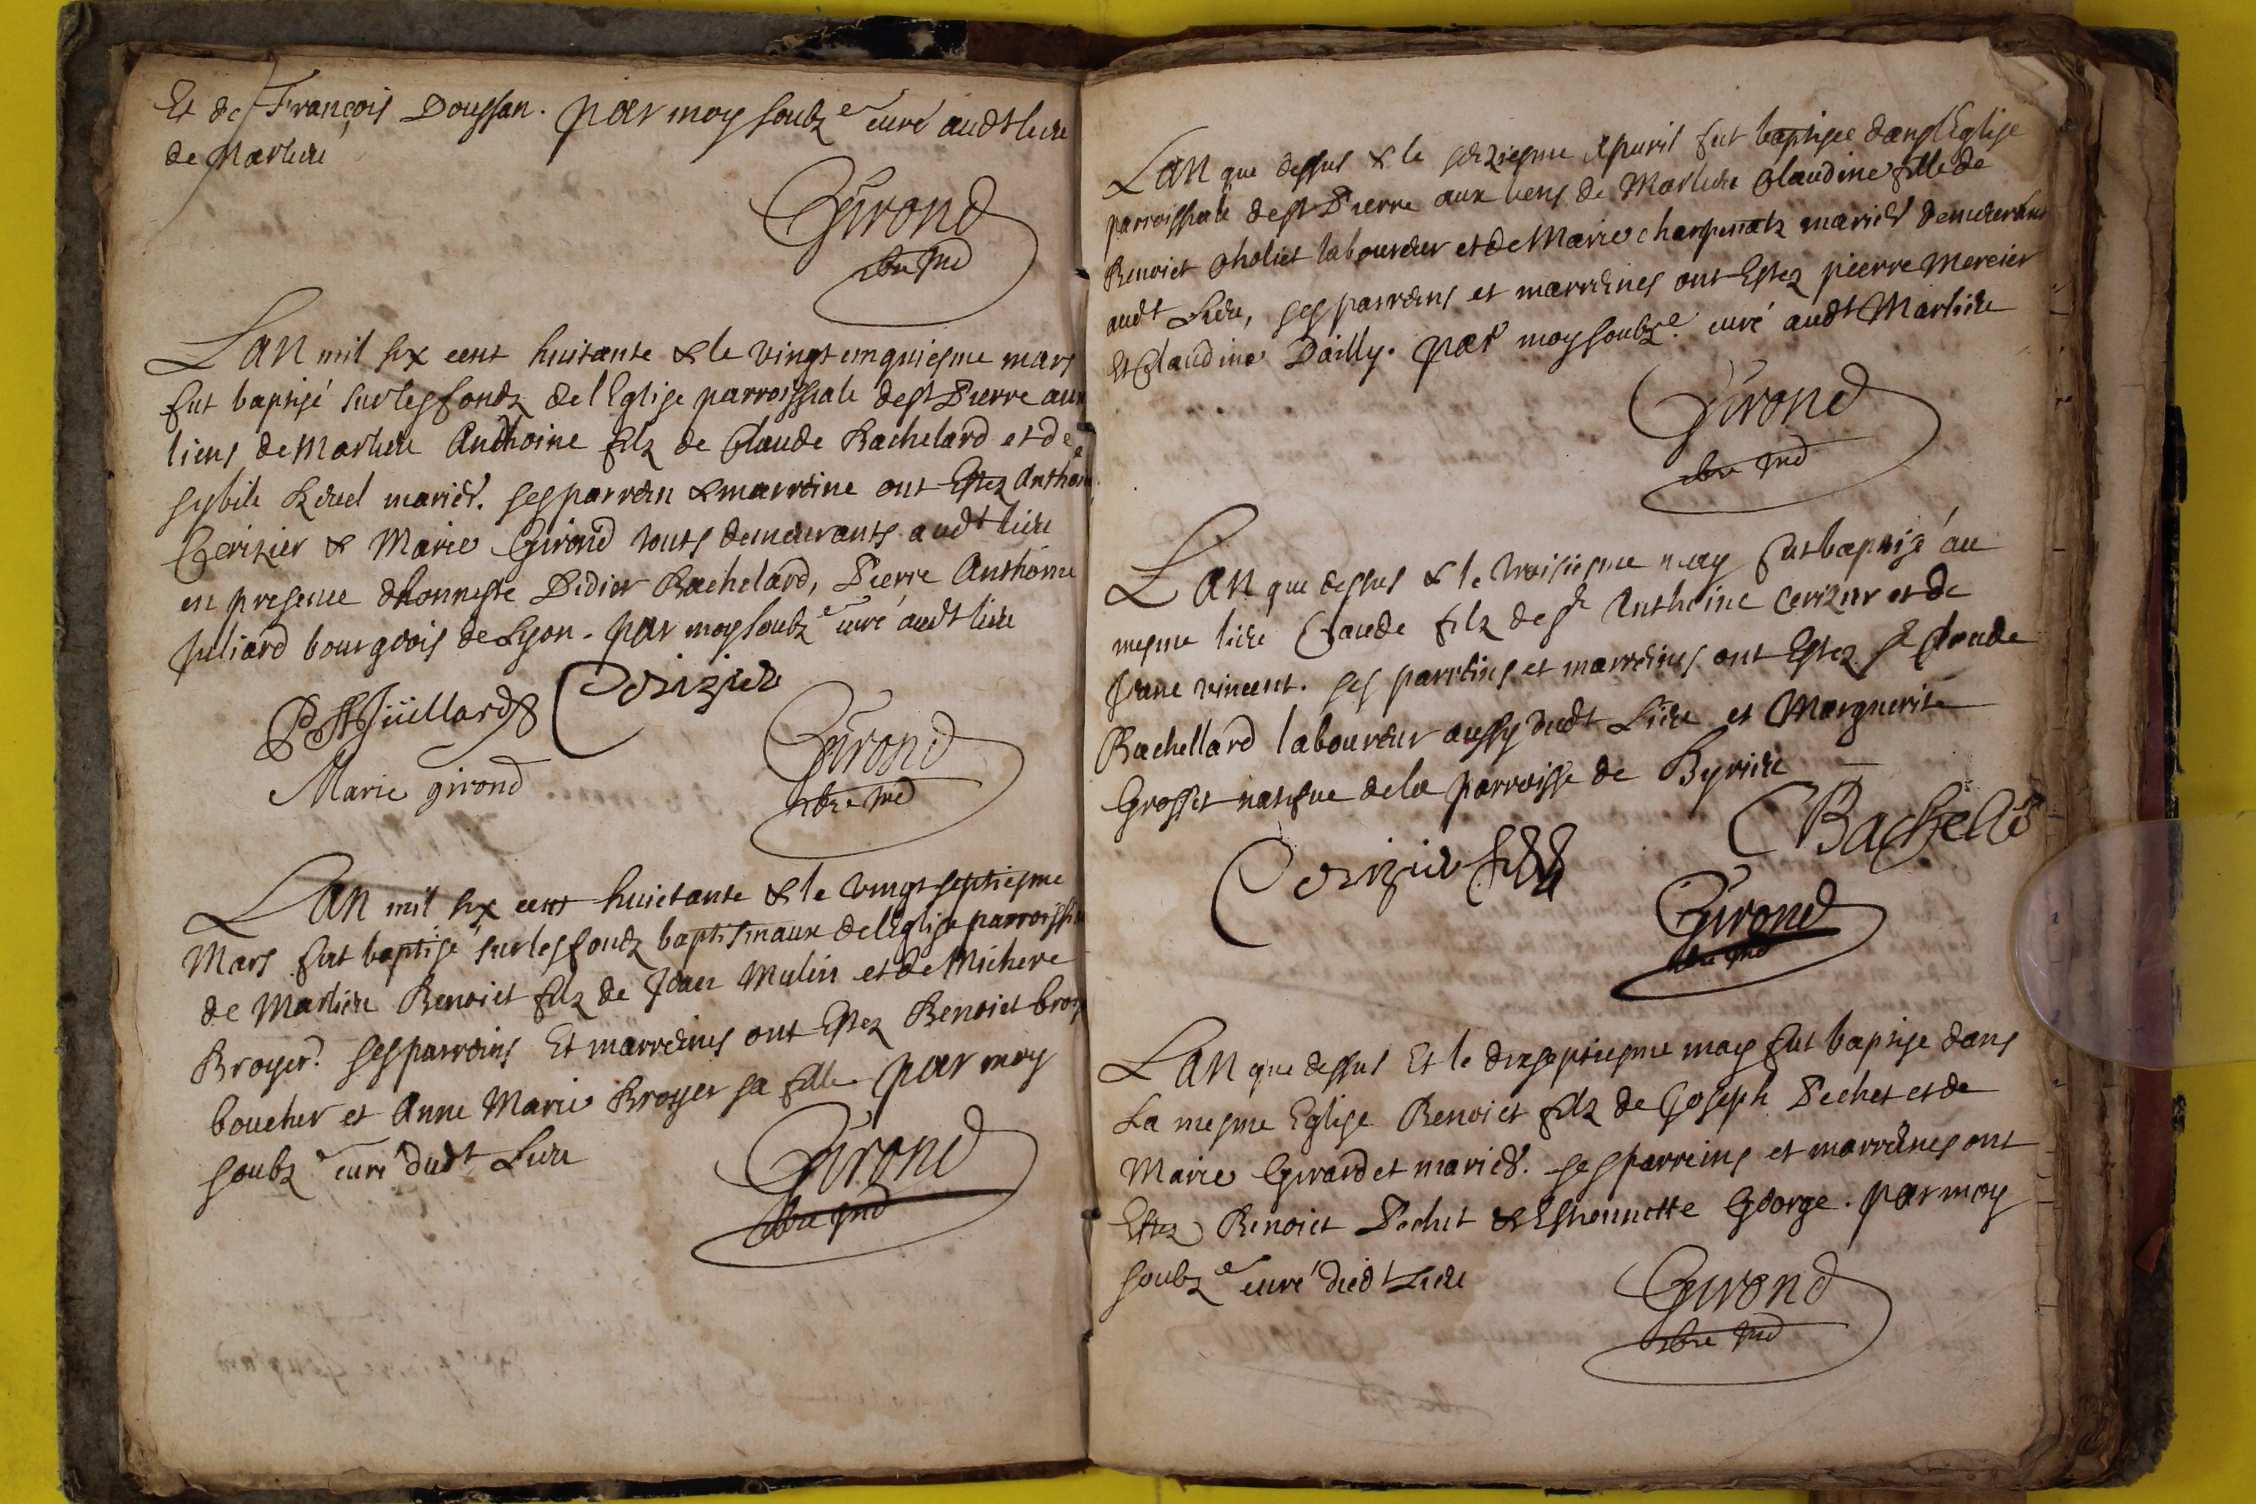 Et de François Doussan. par moy soubz e curé audt lieu
de Marlieu
Girond
Lan mil six cent huitante & le vingt cinquiesme mars
fut baptisé sur les fondz de l Eglise parroissiale de st Pierre aux
liens de Marlieu Anthoine filz de Claude Bachelard et de
sybile mariés. ses parrein & marreine ont Estez Anthoine
Cerizier & Marie Girond touts demeurants audt lieu
en presence dhonneste Didier Bachelard, Pierre Anthoine
Juliard bourgeois de Lyon. par moy soubz e curé audt lieu
Jüillard Cerizier
Marie girond Girond
Lan mil six cent huictante & le vingt septiesme
Mars fut baptisé sur les fondz baptismaux de l Eglise parroissia
de Marlieu Benoict filz de Jean Mulin et de Michere
Broyer. ses parreins Et marreines ont Estez Benoict broy
boucher et Anne Marie Broyer sa fille par moy
soubz e curé dudt Lieu
Girond
Lan que dessus & le seiziesme Apvril fut baptisée dans l Eglise
parroissiale de st Pierre aux liens de Marlieu Claudine fille de
Benoict Choliet laboureur et de Marie mariés demeurans
audt Lieu, ses parreins et marreines ont Estez pierre Mercier
Et Claudine Dailly. par moy soubz e curé audt Marlieu
Girond
Lan que dessus & le troisiesme may fut baptisé au
mesme lieu Claude filz de sr Anthoine Cerizier et de
Jeane vincent. ses parreins et marreines ont Estez sr Claude
Bachellard laboureur aussy dudt Lieu et Marguerite
Grosset natifve de la parroisse de Byrieu
Cerizier CBachelard
Girond
Lan que dessus Et le dixseptiesme may fut baptisé dans
La mesme Eglise Benoict filz de Joseph Pechet et de
Marie Girardet mariés. ses parreins et marreines ont
Estez Benoict Pechet & Estiennette George. par moy
soubz e curé dudt Lieu
Girond